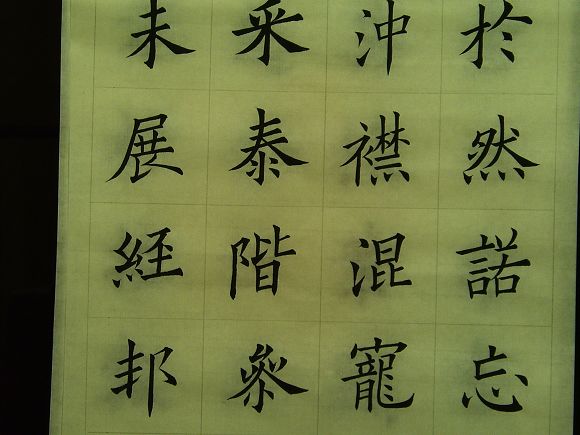 於然諾忘
沖襟混寵
采泰階叅
未展経邦